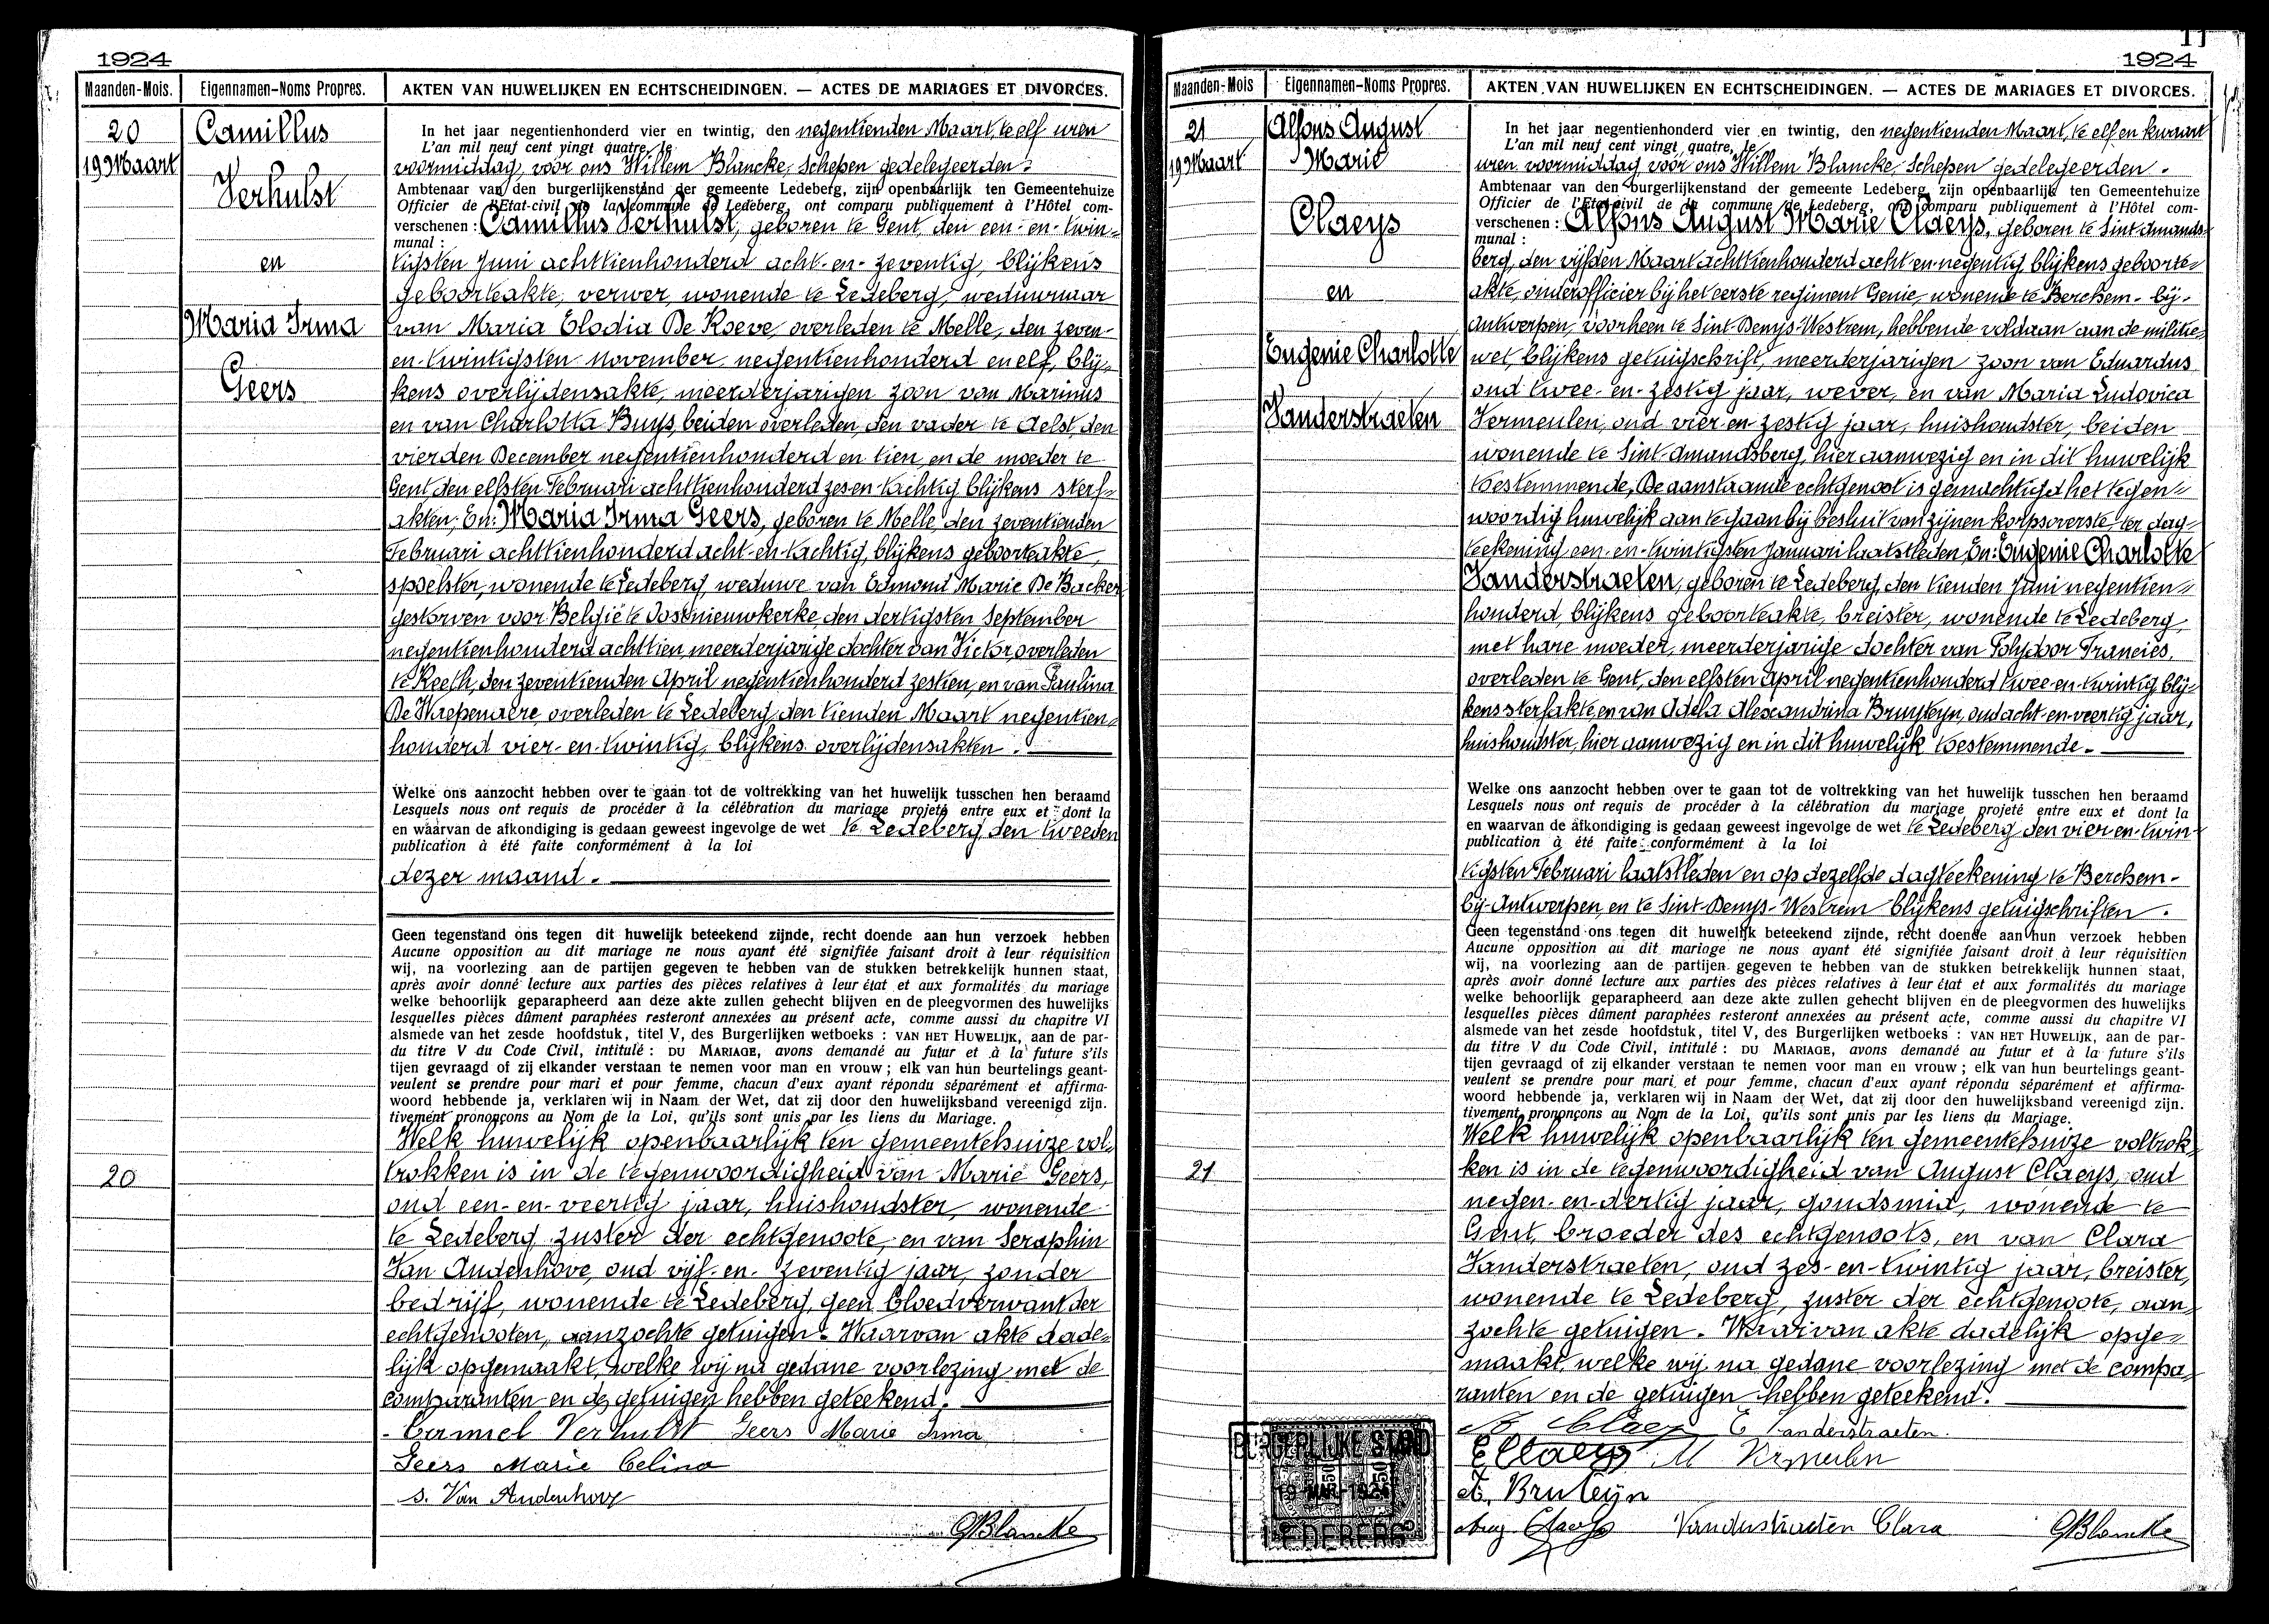 1924
Maanden-Mois. Eigennamen-Noms Propres. AKTEN VAN HUWELIJKEN EN ECHTSCHEIDINGEN. — ACTES DE MARIAGES ET DIVORCES.
20
19 Maart
Camillus
Verhulst
en
Maria Irma
Geers
In het jaar negentienhonderd vier en twintig, den negentienden Maart, te elf uren
L'an mil neuf cent vingt quatre, le
voormiddag, voor ons Willem Blancke, Schepen gedelegeerden.
Ambtenaar van den burgerlijkenstand der gemeente Ledeberg, zijn openbaarlijk ten Gemeentehuize
Officier de l'Etat-civil de la commune de Ledeberg, ont comparu publiquement à l'Hôtel com-
verschenen : Camillus Verhulst, geboren te Gent, den een-en-twin-
munal :
tigsten Juni achttienhonderd acht-en-zeventig, blijkens
geboorteakte, verwer, wonende te Ledeberg, weduwnaar
van Maria Elodia De Koeve, overleden te Melle, den zeven-
en-twintigsten November negentienhonderd en elf, blij-
kens overlijdensakte, meerderjarigen zoon van Marinus
en van Charlotta Buys, beiden overleden, den vader te Aelst, den
vierden December negentienhonderd en tien, en de moeder te
Gent, den elfsten Februari achttienhonderd zes en tachtig, blijkens sterf-
akten; En: Maria Irma Geers, geboren te Melle, den zeventienden
Februari achttienhonderd acht-en-tachtig, blijkens geboorteakte,
spoelster, wonende te Ledeberg, weduwe van Edmond Marie De Backer
gestorven voor België te Oostnieuwkerke, den dertigsten September
negentienhonderd achttien, meerderjarige dochter van Victor, overleden
te Keeth, den zeventienden April negentienhonderd zestien, en van Paulina
De Waepenaere overleden te Ledeberg, den tienden Maart negentien-
honderd vier-en-twintig, blijkens overlijdensakten.
Welke ons aanzocht hebben over te gaan tot de voltrekking van het huwelijk tusschen hen beraamd
Lesquels nous ont requis de procéder à la célébration du mariage projeté entre eux et dont la
en waarvan de afkondiging is gedaan geweest ingevolge de wet te Ledeberg, den tweeden
publication à été faite conformément à la loi
dezer maand.
Geen tegenstand ons tegen dit huwelijk beteekend zijnde, recht doende aan hun verzoek hebben
Aucune opposition au dit mariage ne nous ayant été signifiée faisant droit à leur réquisition
wij, na voorlezing aan de partijen gegeven te hebben van de stukken betrekkelijk hunnen staat,
après avoir donné lecture aux parties des pièces relatives à leur état et aux formalités du mariage
welke behoorlijk geparapheerd aan deze akte zullen gehecht blijven en de pleegvormen des huwelijks
lesquelles pièces dûment paraphées resteront annexées au présent acte, comme aussi du chapitre VI
alsmede van het zesde hoofdstuk, titel V, des Burgerlijken wetboeks : VAN HET HUWELIJK, aan de par-
du titre V du Code Civil, intitulé : DU MARIAGE, avons demandé au futur et à la future s'ils
tijen gevraagd of zij elkander verstaan te nemen voor man en vrouw ; elk van hun beurtelings geant-
veulent se prendre pour mari et pour femme, chacun d'eux ayant répondu séparément et affirma-
woord hebbende ja, verklaren wij in Naam der Wet, dat zij door den huwelijksband vereenigd zijn.
tivement prononçons au Nom de la Loi, qu'ils sont unis par les liens du Mariage.
20
Welk huwelijk openbaarlijk ten gemeentehuize vol-
trokken is in de tegenwoordigheid van Marie Geers,
oud een-en-veertig jaar, huishoudster, wonende
te Ledeberg zuster der echtgenoote, en van Seraphin
Van Audenhove, oud vijf-en-zeventig jaar, zonder
bedrijf, wonende te Ledeberg, geen bloedverwant der
echtgenooten, aanzochte getuigen. Waarvan akte dade-
lijk opgemaakt, welke wij na gedane voorlezing met de
comparanten en de getuigen hebben geteekend.
Camiel Verhulst Geers Marie Irma
Geers Marie Celina
S. Van Audenhove
GBlancke
11
1924
Maanden-Mois Eigennamen-Noms Propres. AKTEN VAN HUWELIJKEN EN ECHTSCHEIDINGEN. — ACTES DE MARIAGES ET DIVORCES.
21
19 Maart
Alfons August
Marie
Claeys
en
Eugenie Charlotte
Vanderstraeten
In het jaar negentienhonderd vier en twintig, den negentienden Maart, te elf en kwaart
L'an mil neuf cent vingt quatre, le
uren voormiddag voor ons Willem Blancke, Schepen gedelegeerden.
Ambtenaar van den burgerlijkenstand der gemeente Ledeberg, zijn openbaarlijk ten Gemeentehuize
Officier de l'Etat-civil de la commune de Ledeberg, ont comparu publiquement à l'Hôtel com-
verschenen : Alfons August Marie Claeys, geboren te Sint-Amands-
munal :
berg, den vijfden Maart achttienhonderd acht en-negentig, blijkens geboorte-
akte, onderofficier bij het eerste regiment Genie, wonende te Berchem-bij-
Antwerpen, voorheen te Sint-Denys-Westrem, hebbende voldaan aan de militie-
wet, blijkens getuigschrift, meerderjarigen zoon van Eduardus
oud twee-en-zestig jaar, wever, en van Maria Ludovica
Vermeulen, oud vier-en-zestig jaar, huishoudster, beiden
wonende te Sint-Amandsberg, hier aanwezig en in dit huwelijk
toestemmende, De aanstaande echtgenoot is gemachtigd het tegen-
woordig huwelijk aan te gaan bij besluit van zijnen korpsoverste ter dag-
teekening een-en-twintigsten Januari laatstleden, En: Eugenie Charlotte
Vanderstraeten, geboren te Ledeberg, den tienden Juni negentien-
honderd, blijkens geboorteakte, breister, wonende te Ledeberg,
met hare moeder, meerderjarige dochter van Polydoor Francies,
overleden te Gent, den elfsten April negentienhonderd twee-en-twintig, blij-
kens sterfakte, en van Adela Alexandrina Bruyteyn, oud acht-en-veertig jaar,
huishoudster, hier aanwezig en in dit huwelijk toestemmende.
Welke ons aanzocht hebben over te gaan tot de voltrekking van het huwelijk tusschen hen beraamd
Lesquels nous ont requis de procéder à la célébration du mariage projeté entre eux et dont la
en waarvan de afkondiging is gedaan geweest ingevolge de wet te Ledeberg den vier-en-twin-
publication à été faite conformément à la loi
tigsten Februari laatstleden en op dezelfde dagteekening te Berchem-
bij-Antwerpen, en te Sint-Denys-Westrem blijkens getuigschriften.
Geen tegenstand ons tegen dit huwelijk beteekend zijnde, recht doende aan hun verzoek hebben
Aucune opposition au dit mariage ne nous ayant été signifiée faisant droit à leur réquisition
wij, na voorlezing aan de partijen gegeven te hebben van de stukken betrekkelijk hunnen staat,
après avoir donné lecture aux parties des pièces relatives à leur état et aux formalités du mariage
welke behoorlijk geparapheerd aan deze akte zullen gehecht blijven en de pleegvormen des huwelijks
lesquelles pièces dûment paraphées resteront annexées au présent acte, comme aussi du chapitre VI
alsmede van het zesde hoofdstuk, titel V, des Burgerlijken wetboeks : VAN HET HUWELIJK, aan de par-
du titre V du Code Civil, intitulé : DU MARIAGE, avons demandé au futur et à la future s'ils
tijen gevraagd of zij elkander verstaan te nemen voor man en vrouw ; elk van hun beurtelings geant-
veulent se prendre pour mari et pour femme, chacun d'eux ayant répondu séparément et affirma-
woord hebbende ja, verklaren wij in Naam der Wet, dat zij door den huwelijksband vereenigd zijn.
tivement prononçons au Nom de la Loi, qu'ils sont unis par les liens du Mariage.
21
Welk huwelijk openbaarlijk ten gemeentehuize voltrok-
ken is in de tegenwoordigheid van August Claeys, oud
negen-en-dertig jaar, goudsmid, wonende te
Gent, broeder des echtgenoots, en van Clara
Vanderstraeten, oud zes-en-twintig jaar, breister,
wonende te Ledeberg, zuster der echtgenoote, aan-
zochte getuigen. Waarvan akte dadelijk opge-
maakt, welke wij na gedane voorlezing met de compa-
ranten en de getuigen hebben geteekend.
A. Claeys E Vanderstraeten.
E Claeys M Vermeulen
A. Bruteyn
Aug Claeys Vanderstraeten Clara GBlancke
BURGERLIJKE STAND
19 MAR 1924
LEDEBERG